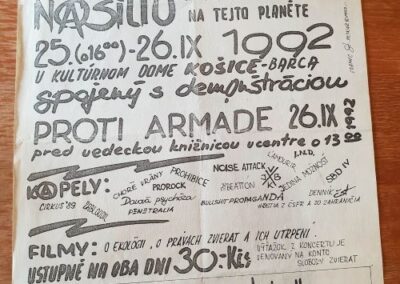 NÁSILIU NA TEJTO PLANÉTE
25. (o 16⁰⁰) - 26. IX 1992
U KULTÚRNOM DOME KOŠICE - BARCA
spojený s demonštráciou
PROTI ARMADE 26. IX 1992
pred vedeckou knižnicou u centre o 13 00
KAPELY:
CIRKUS '89
CHORÉ VRÁNY
PROHIBICE
PROROCK
Davová psychóza
PENETRALIA
NOISE ATTACK
BEATION
BULLSHIT PROPAGANDA
LAHOUTIR
I.N.D.
JEDINÁ MOŽNOSŤ
SBD IV
DENNIK EST
HOSTIA Z ČSFR A ZO ZAHRANIČIA
FILMY: O EKOLÓGII, O PRÁVACH ZVIERAT A ICH UTRPENÍ
VÝŤAŽOK Z KONCERTU JE
VENOVANÝ NA KONTO
SLOBODY ZVIERAT
USTUPNÉ NA OBA DNI 30.- Kčs